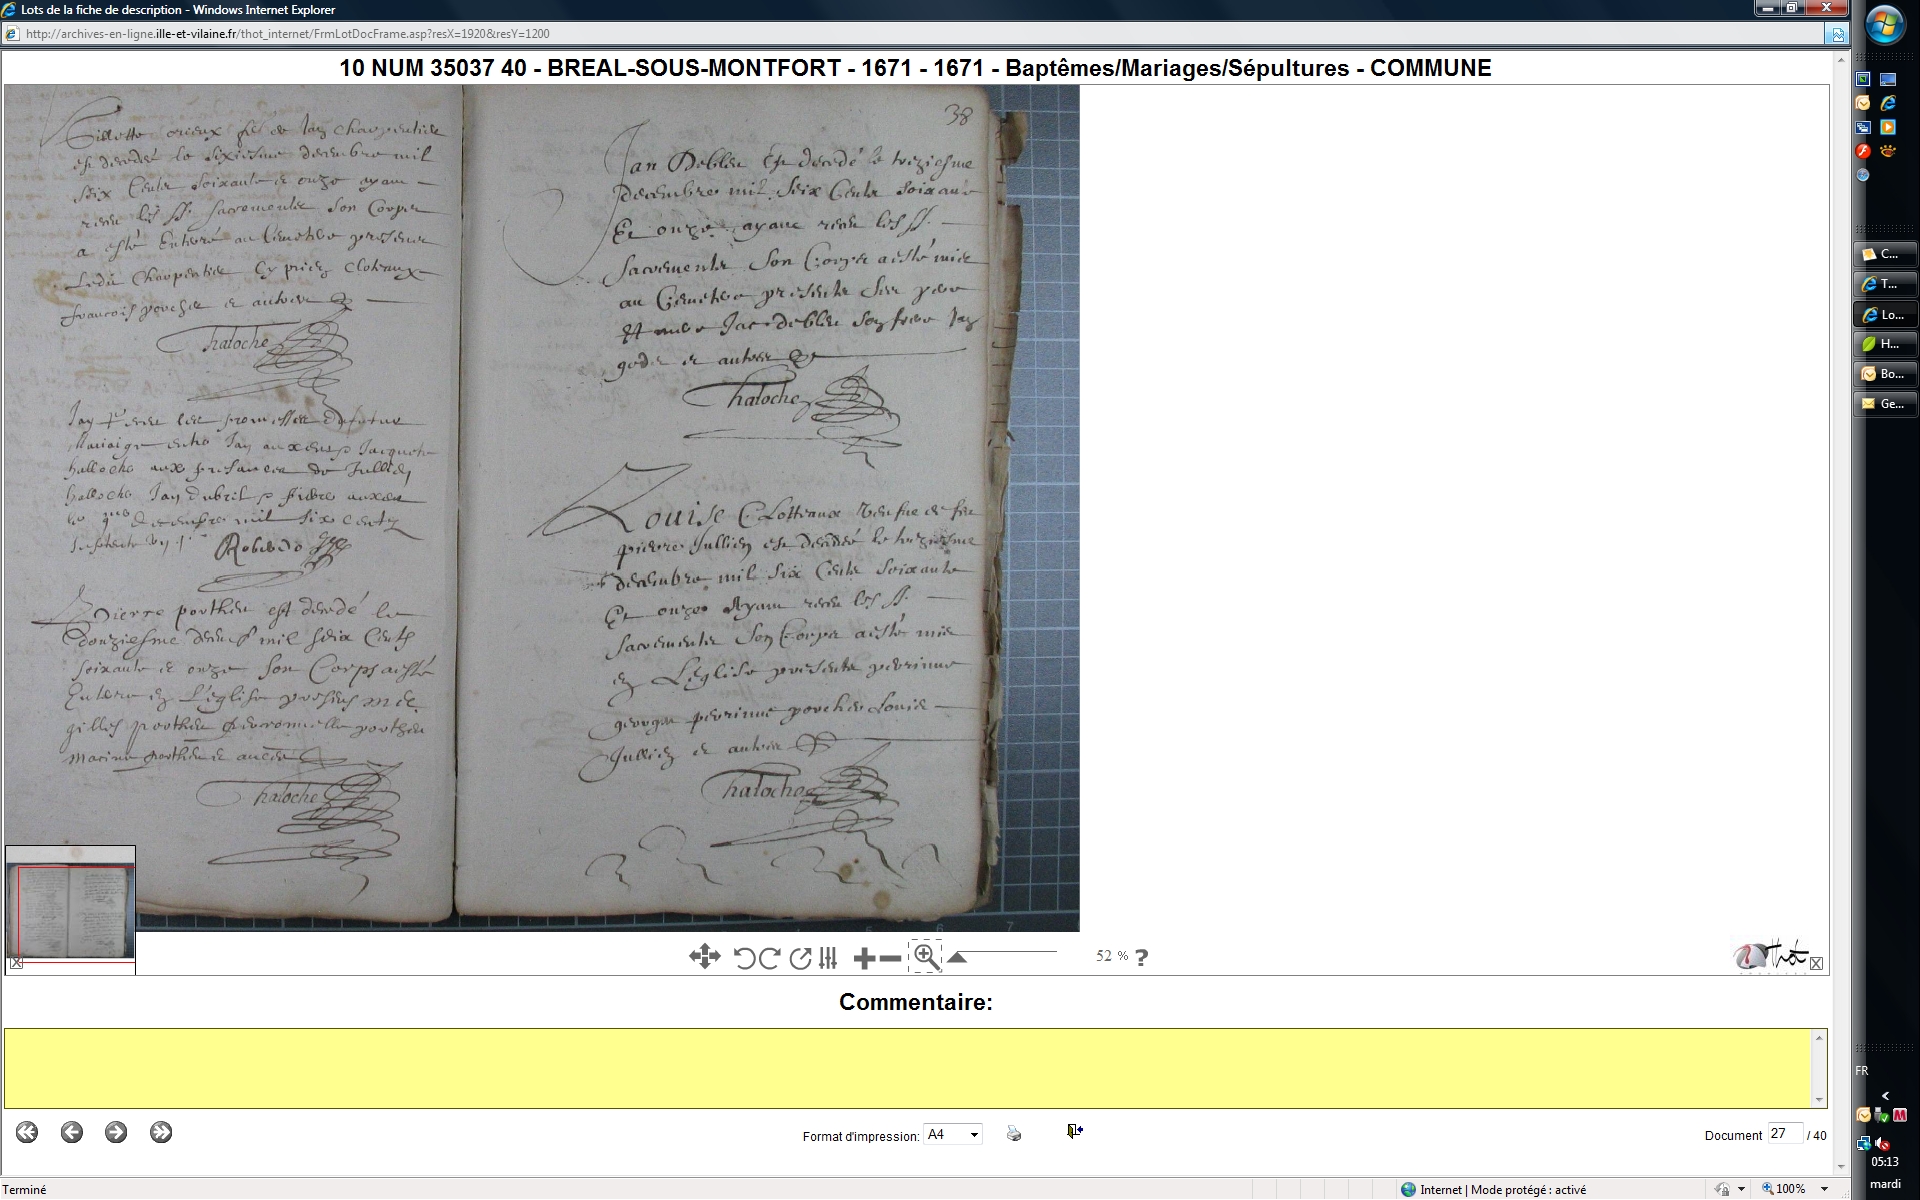 Lots de la fiche de description - Windows Internet Explorer
http://archives-en-ligne.ille-et-vilaine.fr/thot_internet/FrmLotDocFrame.asp?resX=1920&resY=1200
10 NUM 35037 40 - BREAL-SOUS-MONTFORT - 1671 - 1671 - Baptêmes/Mariages/Sépultures - COMMUNE
Gillette orieux fe de Jan Charpentier
est decedé le sixiesme decembre mil
seix Cents soixante et onze ayant
receu les SS. sacrements son Corps
a esté Enterré au Cemetere presents
Ledit Charpentier Cloteaux
francois porcher et autres
Chaloche
Jay les promesses de futur
Mariaige entre Jan Jacquette
halloche aux presances de Jullien
halloche Jan dubril pierre
decembre mil six centz
Pierre porther est decedé le
douziesme mil seix Cents
soixante et onze son Corps a esté
Enterré en L'églisse presens
gilles porther perronnelle porther
porther et
Chaloche
38
Jan Debleu Est decedé le treziesme
decembre mil seix Cents soixante
Et onze ayant receu les SS.
sacrements Son Corps a esté mis
au Cemetere presents Ses pere
Et mere Jac. debleu son frere Jan
et autres
Chaloche
Louise Clotteaux veufue de feu
pierre Jullien est decedé le treziesme
decembre mil six Cents soixante
Et onze Ayant receu les SS.
sacrements Son Corps a esté mis
en L'Eglise presents perrinne
perrinne porcher Louise
Jullien et autres
Chaloche
52 % ?
Thot
Commentaire:
Format d'impression: A4
Document 27 / 40
Terminé
Internet | Mode protégé : activé
100%
C...
T...
Lo...
H...
Bo...
Ge...
FR
05:13
mardi